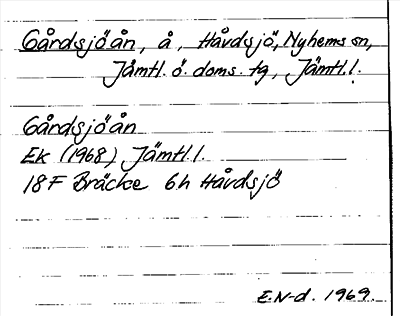 Gårdsjöån, å, Håvdsjö, Nyhems sn,
Jämtl. ö. doms. tg, Jämtl. l.
Gårdsjöån
Ek (1968) Jämtl. l.
18F Bräcke 6h Håvdsjö
E.N-d. 1969.